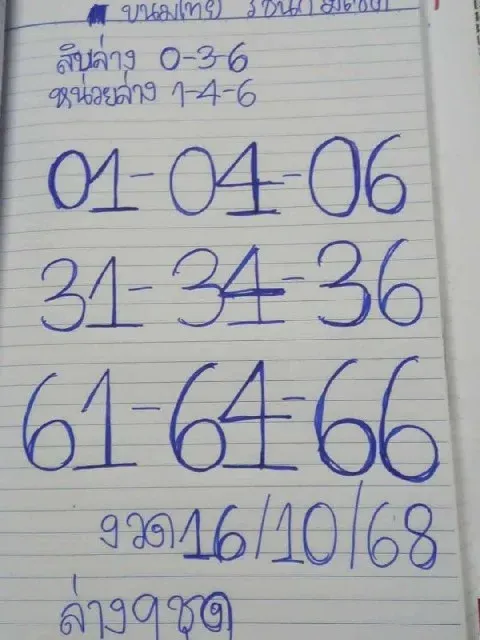 ขนมไทย
สิบล่าง 0-3-6
หน่วยล่าง 1-4-6
01-04-06
31-34-36
61-64-66
งวด16/10/68
ล่าง9ชุด